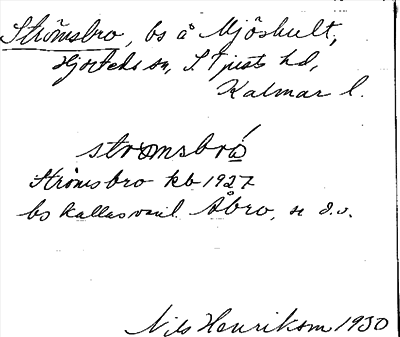 Strömsbro, bs å Mjöshult,
Hjorteds sn, S. Tjusts hd,
Kalmar l.
strömsbro
Strömsbro kb 1927
bs kallas vanl. Åbro, se d.o.
Nils Henrikson 1930